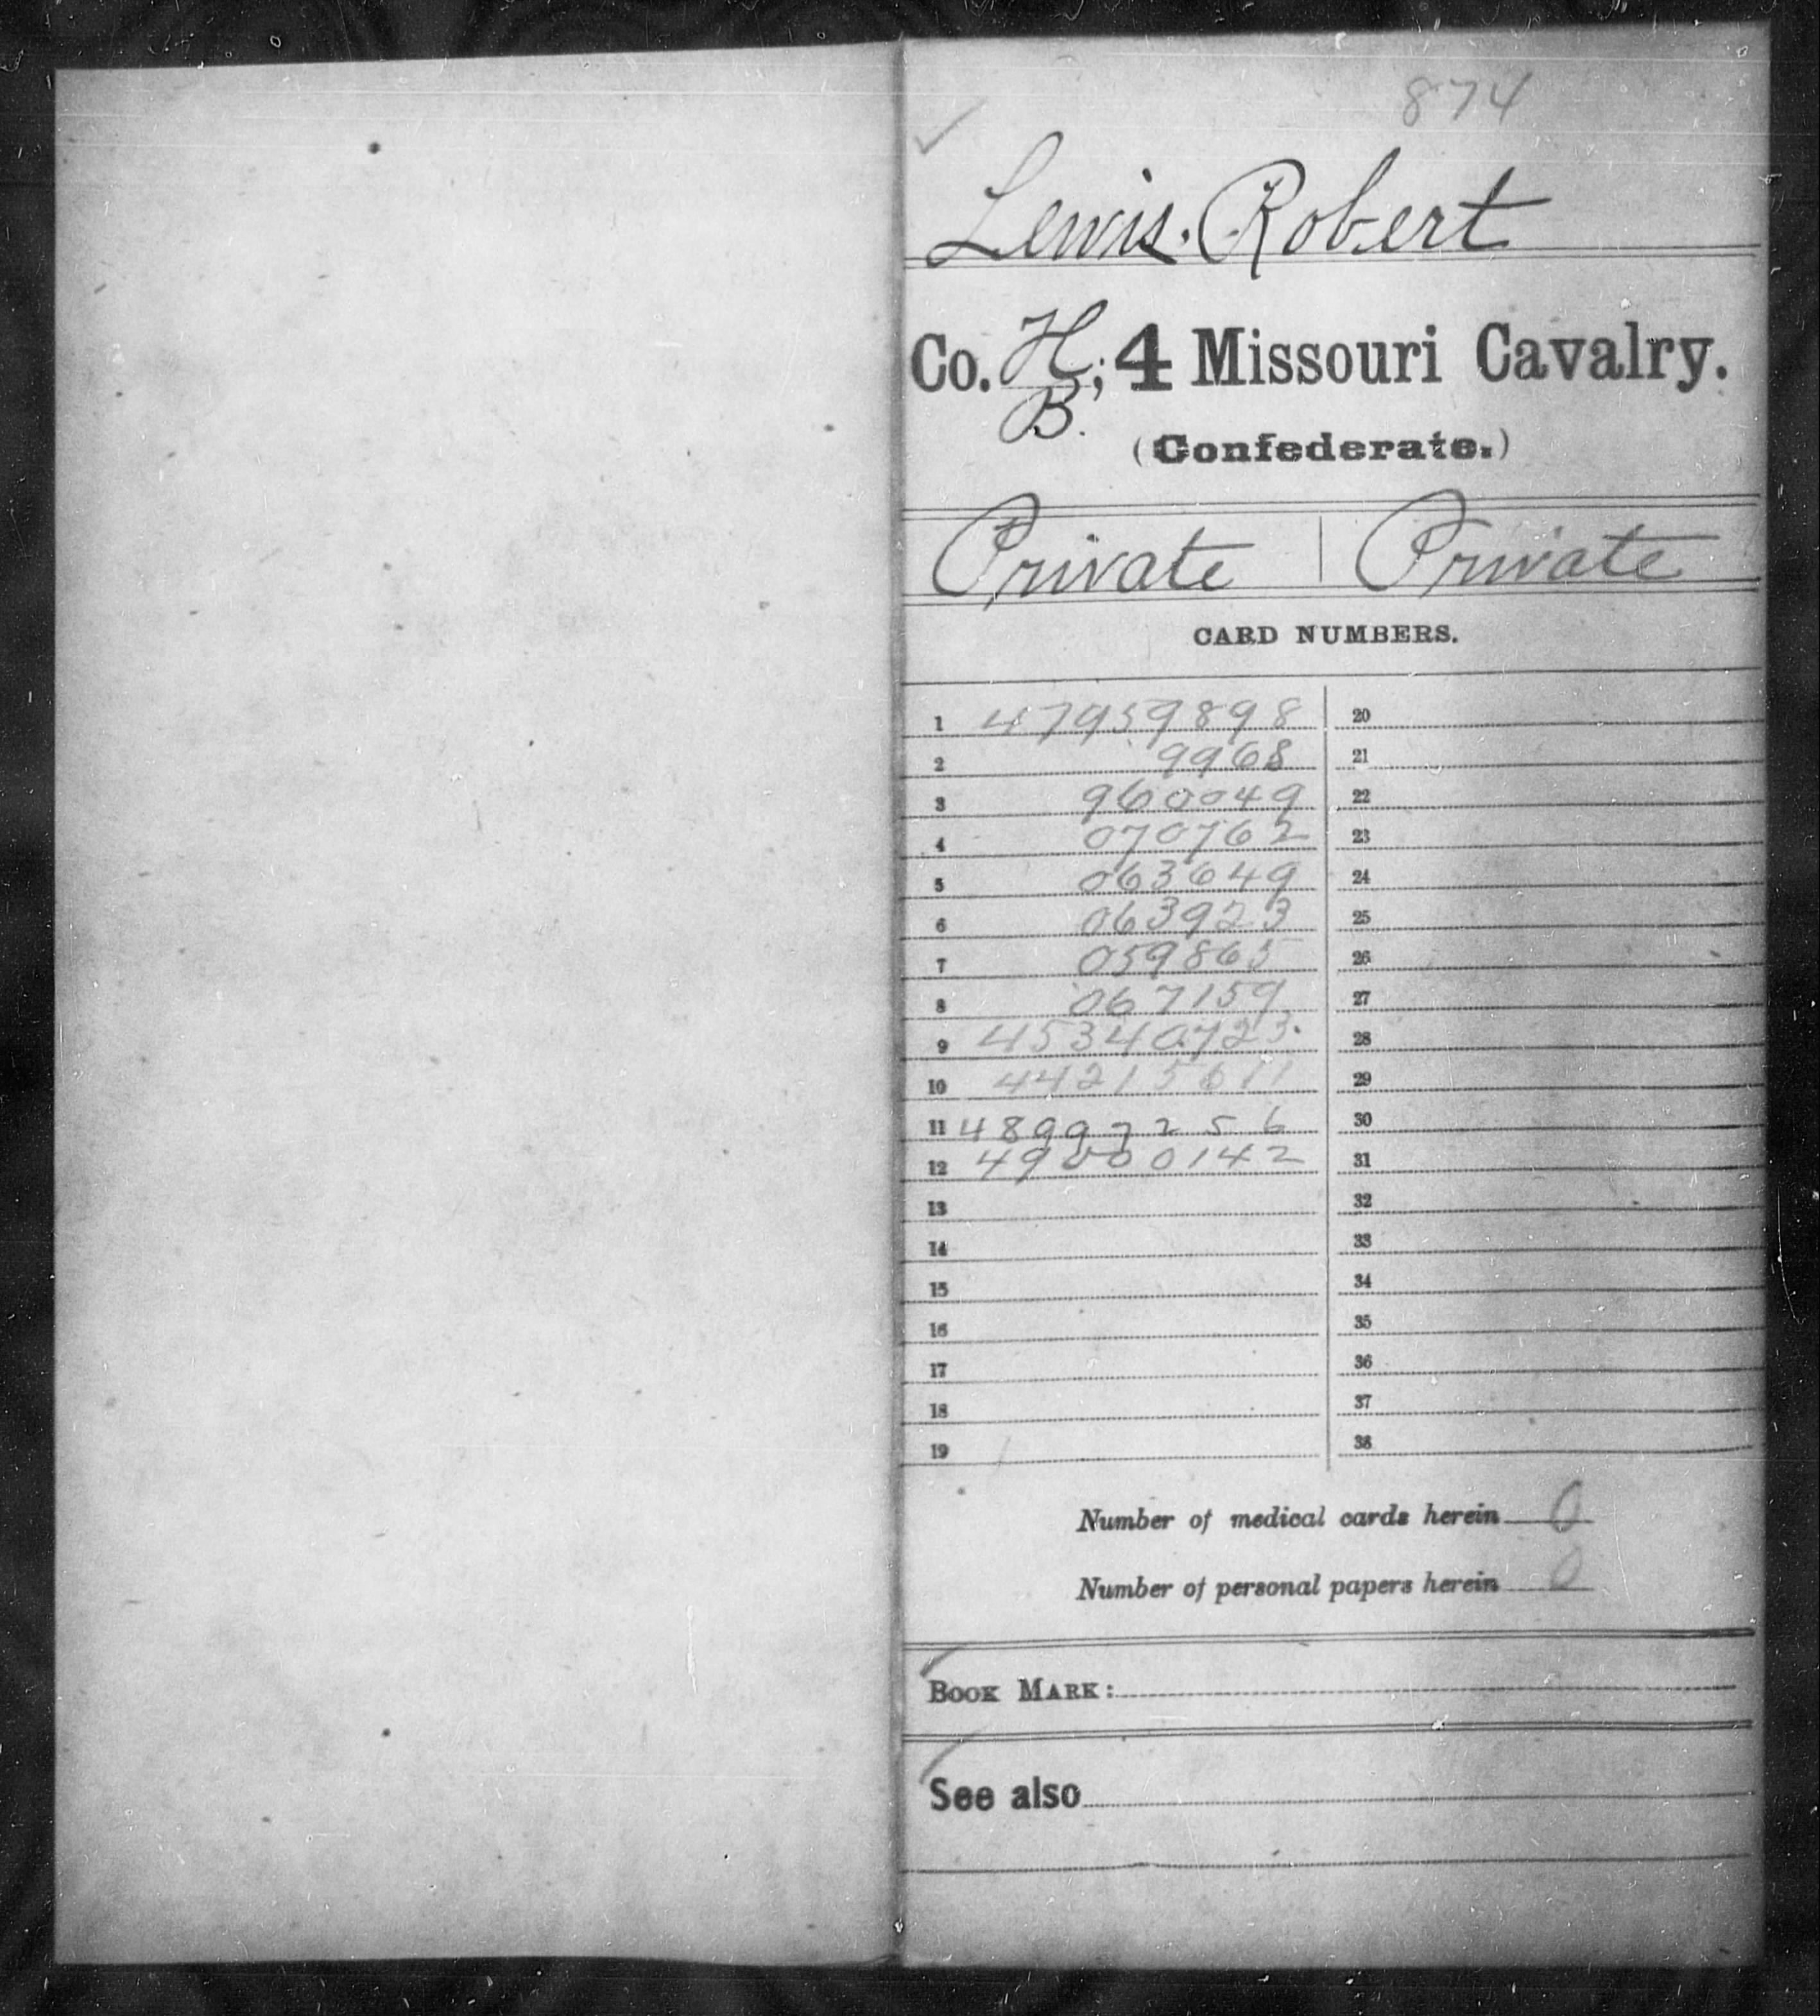 874
Lewis. Robert
Co. H; 4 Missouri Cavalry.
B.
(Confederate.)
Private | Private
CARD NUMBERS.
1 47959898 20
2 9968 21
3 960049 22
4 070762 23
5 063649 24
6 063923 25
7 059865 26
8 067159 27
9 45340723 28
10 44215611 29
11 48997256 30
12 49000142 31
13 32
14 33
15 34
16 35
17 36
18 37
19 38
Number of medical cards herein 0
Number of personal papers herein 0
BOOK MARK:
See also